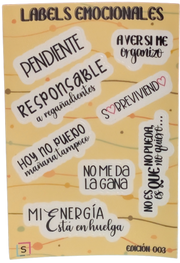 LABELS EMOCIONALES
PENDIENTE
A VER SI ME
organizo
RESPONSABLE
a regañadientes
SOBREVIVIENDO
HOY NO PUEDO
mañana tampoco
NO ES QUE NO PUEDA,
es que no quiero...
NO ME DA
LA GANA
MI ENERGÍA
Está en huelga
S
EDICIÓN 003